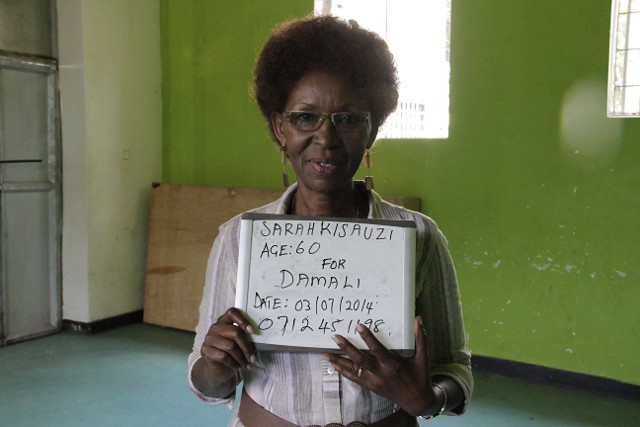 SARAH KISAUZI
AGE: 60
FOR
DAMALI
DATE: 03/07/2014
0712451198